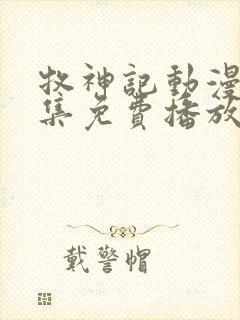 牧神記動漫
集免費播放
戴警帽